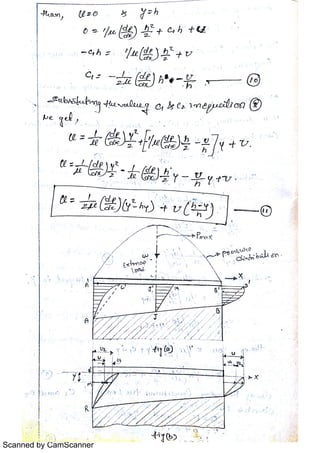 then, u=0 & y=h
0 = 1/μ (dp/dx) h²/2 + C₁h + U
-C₁h = 1/μ (dp/dx) h²/2 + U
C₁ = - 1/2μ (dp/dx) h - U/h — (10)
Substituting the value of C₁ & C₂ in equation (8)
we get,
u = 1/μ (dp/dx) y²/2 + [-1/μ (dp/dx) h/2 - U/h] y + U.
u = 1/μ (dp/dx) y²/2 - 1/μ (dp/dx) h/2 y - U/h y + U.
u = 1/2μ (dp/dx) (y²-hy) + U (h-y/h) — (11)
Pmax
W
External
load
pressure
distribution.
X
A B
fig(a)
X
fig(b)
Scanned by CamScanner